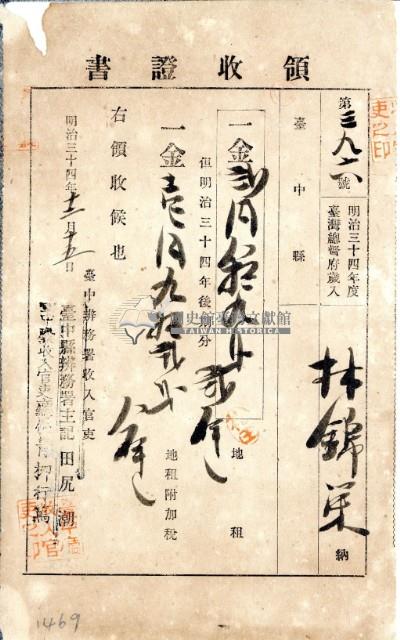 領收證書
第三九六號
明治三十四年度
臺灣總督府歲入
林錦榮 納
臺中縣
一金貳円拾九錢貳厘 地租
但明治三十四年後期分
一金壱円九拾貳錢八厘 地租附加稅
右領收候也
明治三十四年十二月十五日
臺中辨務署收入官吏
臺中縣辨務署主記 田尻潮
國史館臺灣文獻館
TAIWAN HISTORICA
1469